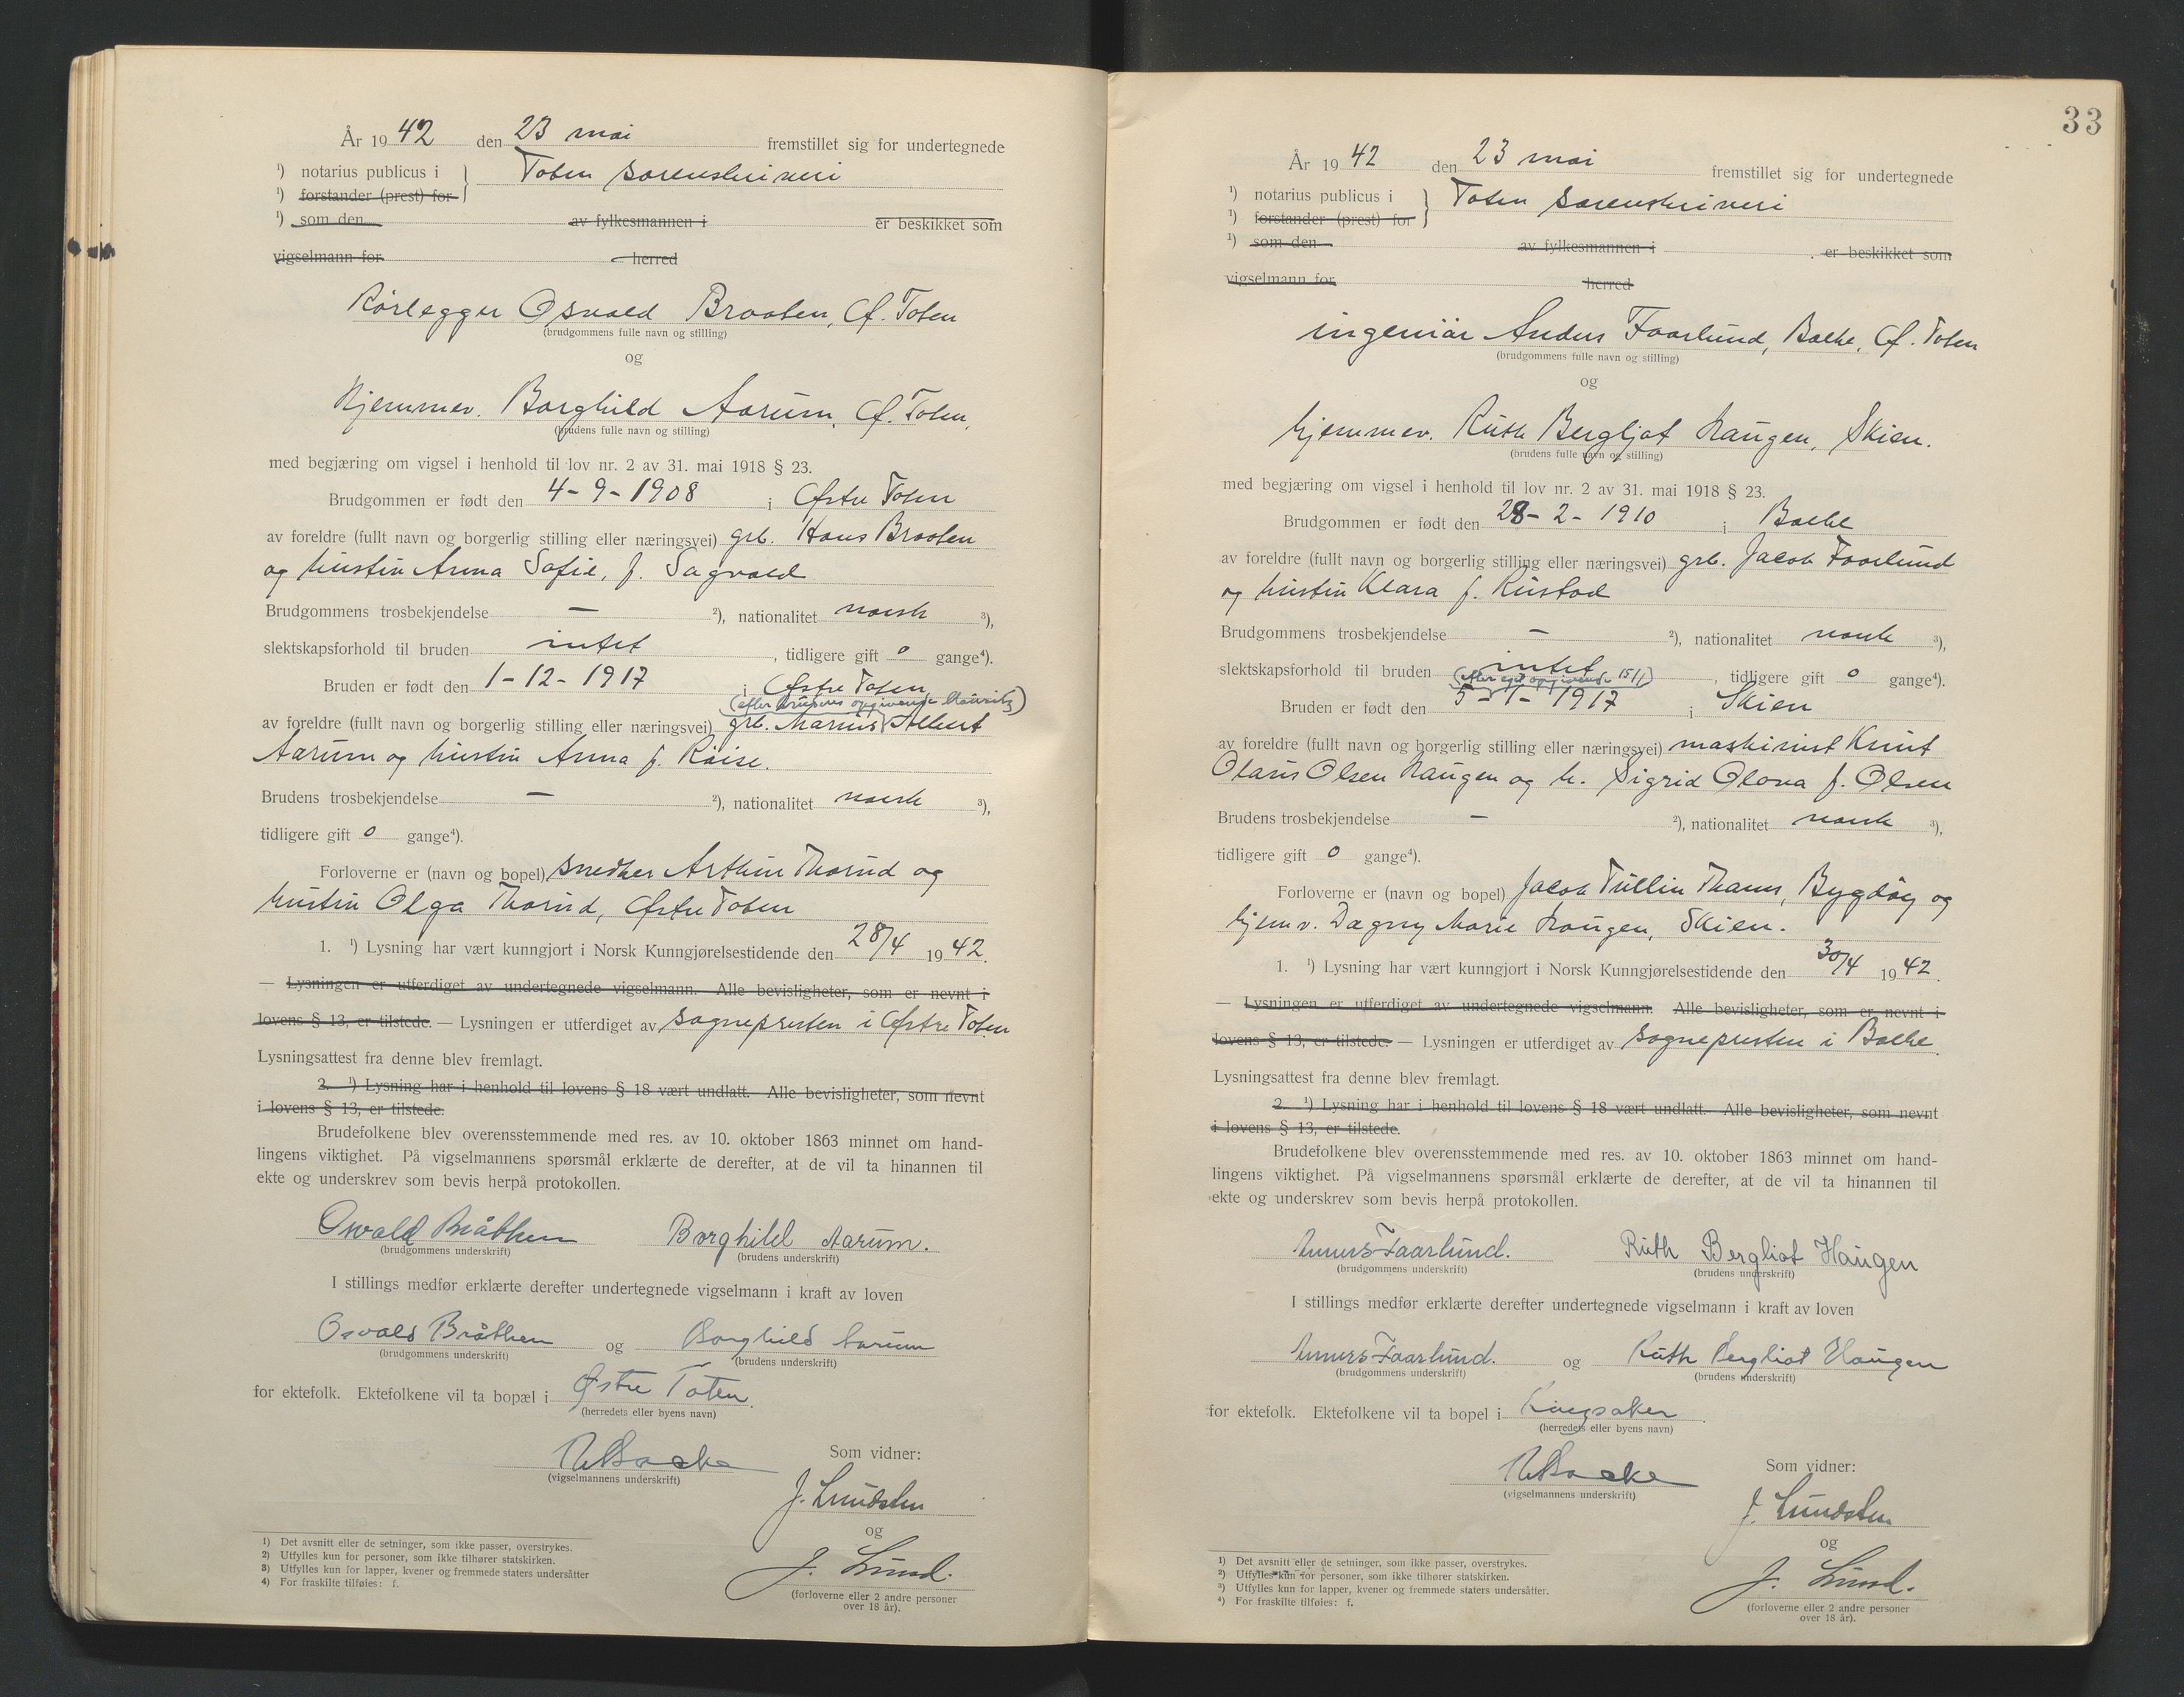 År 1942 den 23 mai fremstillet sig for undertegnede
1) notarius publicus i } Toten sorenskriveri
1) forstander (prest) for
1) som den av fylkesmannen i er beskikket som
vigselmann for herred
Rörlegger Osvald Braaten, Ø. Toten
(brudgommens fulle navn og stilling)
og
Hjemmev. Borghild Aarum, Ø. Toten,
(brudens fulle navn og stilling)
med begjæring om vigsel i henhold til lov nr. 2 av 31. mai 1918 § 23.
Brudgommen er født den 4-9-1908 i Østre Toten
av foreldre (fullt navn og borgerlig stilling eller næringsvei) grb. Hans Braaten
og hustru Anna Sofie, f. Sagvold
Brudgommens trosbekjendelse — 2), nationalitet norsk 3),
slektskapsforhold til bruden intet, tidligere gift 0 gange4).
Bruden er født den 1-12-1917 i Østre Toten
(efter brudens opgivende Mauritz)
av foreldre (fullt navn og borgerlig stilling eller næringsvei) grb. Marius Albert
Aarum og hustru Anna f. Röise.
Brudens trosbekjendelse — 2), nationalitet norsk 3),
tidligere gift 0 gange4).
Forloverne er (navn og bopel) snedker Arthur Thorud og
hustru Olga Thorud, Østre Toten
1. 1) Lysning har vært kunngjort i Norsk Kunngjørelsestidende den 28/4 1942.
— Lysningen er utferdiget av undertegnede vigselmann. Alle bevisligheter, som er nevnt i
lovens § 13, er tilstede. — Lysningen er utferdiget av sognepresten i Østre Toten
Lysningsattest fra denne blev fremlagt.
2. 1) Lysning har i henhold til lovens § 18 vært undlatt. Alle bevisligheter, som nevnt
i lovens § 13, er tilstede.
Brudefolkene blev overensstemmende med res. av 10. oktober 1863 minnet om hand-
lingens viktighet. På vigselmannens spørsmål erklærte de derefter, at de vil ta hinannen til
ekte og underskrev som bevis herpå protokollen.
Osvald Bråthen Borghild Aarum.
(brudgommens underskrift) (brudens underskrift)
I stillings medfør erklærte derefter undertegnede vigselmann i kraft av loven
Osvald Bråthen og Borghild Aarum
(brudgommens underskrift) (brudens underskrift)
for ektefolk. Ektefolkene vil ta bopæl i Østre Toten.
(herredets eller byens navn)
Som vidner:
(vigselmannens underskrift)
J. Lundsten
og
J. Lund.
(forloverne eller 2 andre personer
over 18 år).
1) Det avsnitt eller de setninger, som ikke passer, overstrykes.
2) Utfylles kun for personer, som ikke tilhører statskirken.
3) Utfylles kun for lapper, kvener og fremmede staters undersåtter
4) For fraskilte tilføies: f.
33
År 1942 den 23 mai fremstillet sig for undertegnede
1) notarius publicus i } Toten sorenskriveri
1) forstander (prest) for
1) som den av fylkesmannen i . er beskikket som
vigselmann for herred
ingeniör Anders Faarlund, Balke, Ø. Toten
(brudgommens fulle navn og stilling)
og
hjemmev. Ruth Bergljot Haugen, Skien.
(brudens fulle navn og stilling)
med begjæring om vigsel i henhold til lov nr. 2 av 31. mai 1918 § 23.
Brudgommen er født den 28-2-1910 i Balke
av foreldre (fullt navn og borgerlig stilling eller næringsvei) grb. Jacob Faarlund
og hustru Klara f. Rustad
Brudgommens trosbekjendelse — 2), nationalitet norsk 3),
slektskapsforhold til bruden intet, tidligere gift 0 gange4).
(efter eget opgivende 15/1)
Bruden er født den 5-1-1917 i Skien
av foreldre (fullt navn og borgerlig stilling eller næringsvei) maskinist Knut
Olaus Olsen Haugen og h. Sigrid Olova f. Olsen
Brudens trosbekjendelse — 2), nationalitet norsk 3),
tidligere gift 0 gange4).
Forloverne er (navn og bopel) Jacob Tullin Thams, Bygdöy og
hjemv. Dagny Marie Haugen, Skien.
1. 1) Lysning har vært kunngjort i Norsk Kunngjørelsestidende den 30/4 1942.
— Lysningen er utferdiget av undertegnede vigselmann. Alle bevisligheter, som er nevnt i
lovens § 13, er tilstede. — Lysningen er utferdiget av sognepresten i Balke.
Lysningsattest fra denne blev fremlagt.
2. 1) Lysning har i henhold til lovens § 18 vært undlatt. Alle bevisligheter, som nevnt
i lovens § 13, er tilstede.
Brudefolkene blev overensstemmende med res. av 10. oktober 1863 minnet om hand-
lingens viktighet. På vigselmannens spørsmål erklærte de derefter, at de vil ta hinannen til
ekte og underskrev som bevis herpå protokollen.
Anders Faarlund. Ruth Bergliot Haugen
(brudgommens underskrift) (brudens underskrift)
I stillings medfør erklærte derefter undertegnede vigselmann i kraft av loven
Anders Faarlund. og Ruth Bergliot Haugen
(brudgommens underskrift) (brudens underskrift)
for ektefolk. Ektefolkene vil ta bopel i Ringsaker.
(herredets eller byens navn)
Som vidner:
(vigselmannens underskrift)
J. Lundsten
og
J. Lund.
(forloverne eller 2 andre personer
over 18 år).
1) Det avsnitt eller de setninger, som ikke passer, overstrykes.
2) Utfylles kun for personer, som ikke tilhører statskirken.
3) Utfylles kun for lapper, kvener og fremmede staters undersåtter.
4) For fraskilte tilføies: f.